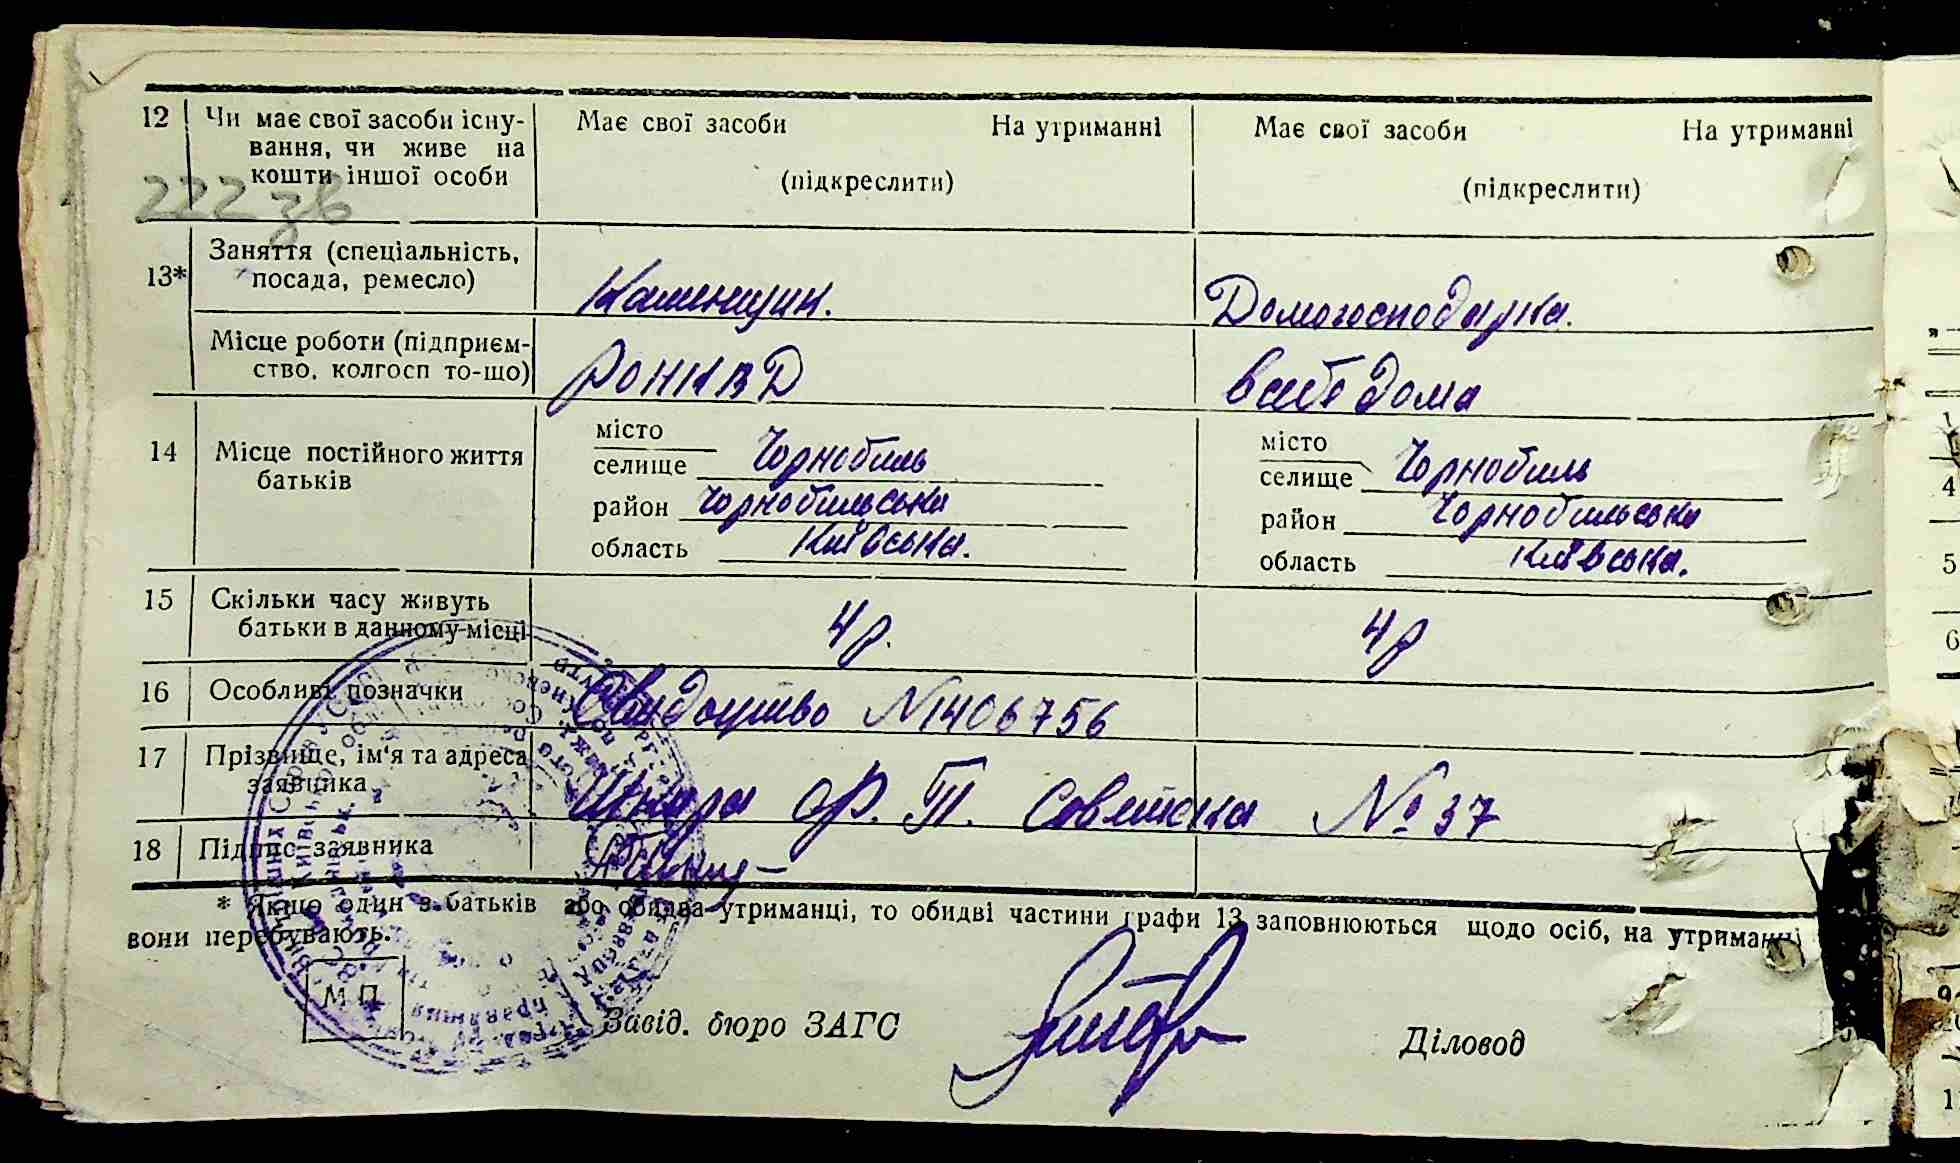 12 Чи має свої засоби існу- Має свої засоби На утриманні Має свої засоби На утриманні
вання, чи живе на
кошти іншої особи (підкреслити) (підкреслити)
222 зв
13* Заняття (спеціальність,
посада, ремесло) Каменщик. Домогосподарка.
Місце роботи (підприєм-
ство, колгосп то-що) РОНКВД в себе дома
14 Місце постійного життя
батьків
місто
селище Чорнобиль
район Чорнобильська
область Київська.
місто
селище Чорнобиль
район Чорнобильська
область Київська.
15 Скільки часу живуть
батьки в данному місці 4 р. 4 р
16 Особливі позначки Свидоцтво N 1406756
17 Прізвище, ім'я та адреса
заявника Т. Советска № 37
18 Підпис заявника
* Якщо один з батьків або обидва утриманці, то обидві частини графи 13 заповнюються щодо осіб, на утриманні
вони перебувають.
М П
Завід. бюро ЗАГС Діловод